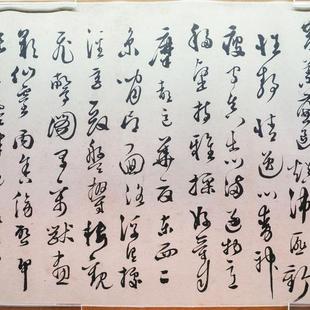 節義廉退顛沛匪虧
性靜情逸心動神
疲守真志滿逐物意
移堅持雅操好爵自
縻都邑華夏東西二
京背邙面洛浮渭據
涇宮殿盤鬱樓觀
飛驚圖寫禽獸畫
彩仙靈丙舍傍啟甲